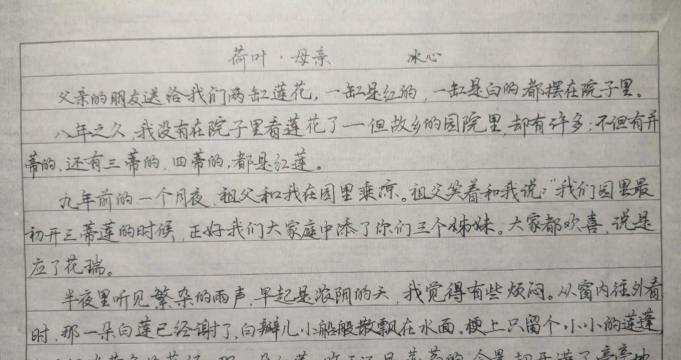 荷叶·母亲 冰心
父亲的朋友送给我们两缸莲花，一缸是红的，一缸是白的都摆在院子里。
八年之久，我没有在院子里看莲花了—但故乡的园院里却有许多；不但有并
蒂的，还有三蒂的，四蒂的，都是红莲。
九年前的一个月夜，祖父和我在园里乘凉。祖父笑着和我说：“我们园里最
初开三蒂莲的时候，正好我们大家庭中添了你们三个姊妹。大家都欢喜，说是
应了花瑞。
半夜里听见繁杂的雨声，早起是浓阴的天，我觉得有些烦闷。从窗内往外看
时，那一朵白莲已经谢了，白瓣儿小船般散飘在水面。梗上只留个小小的莲蓬